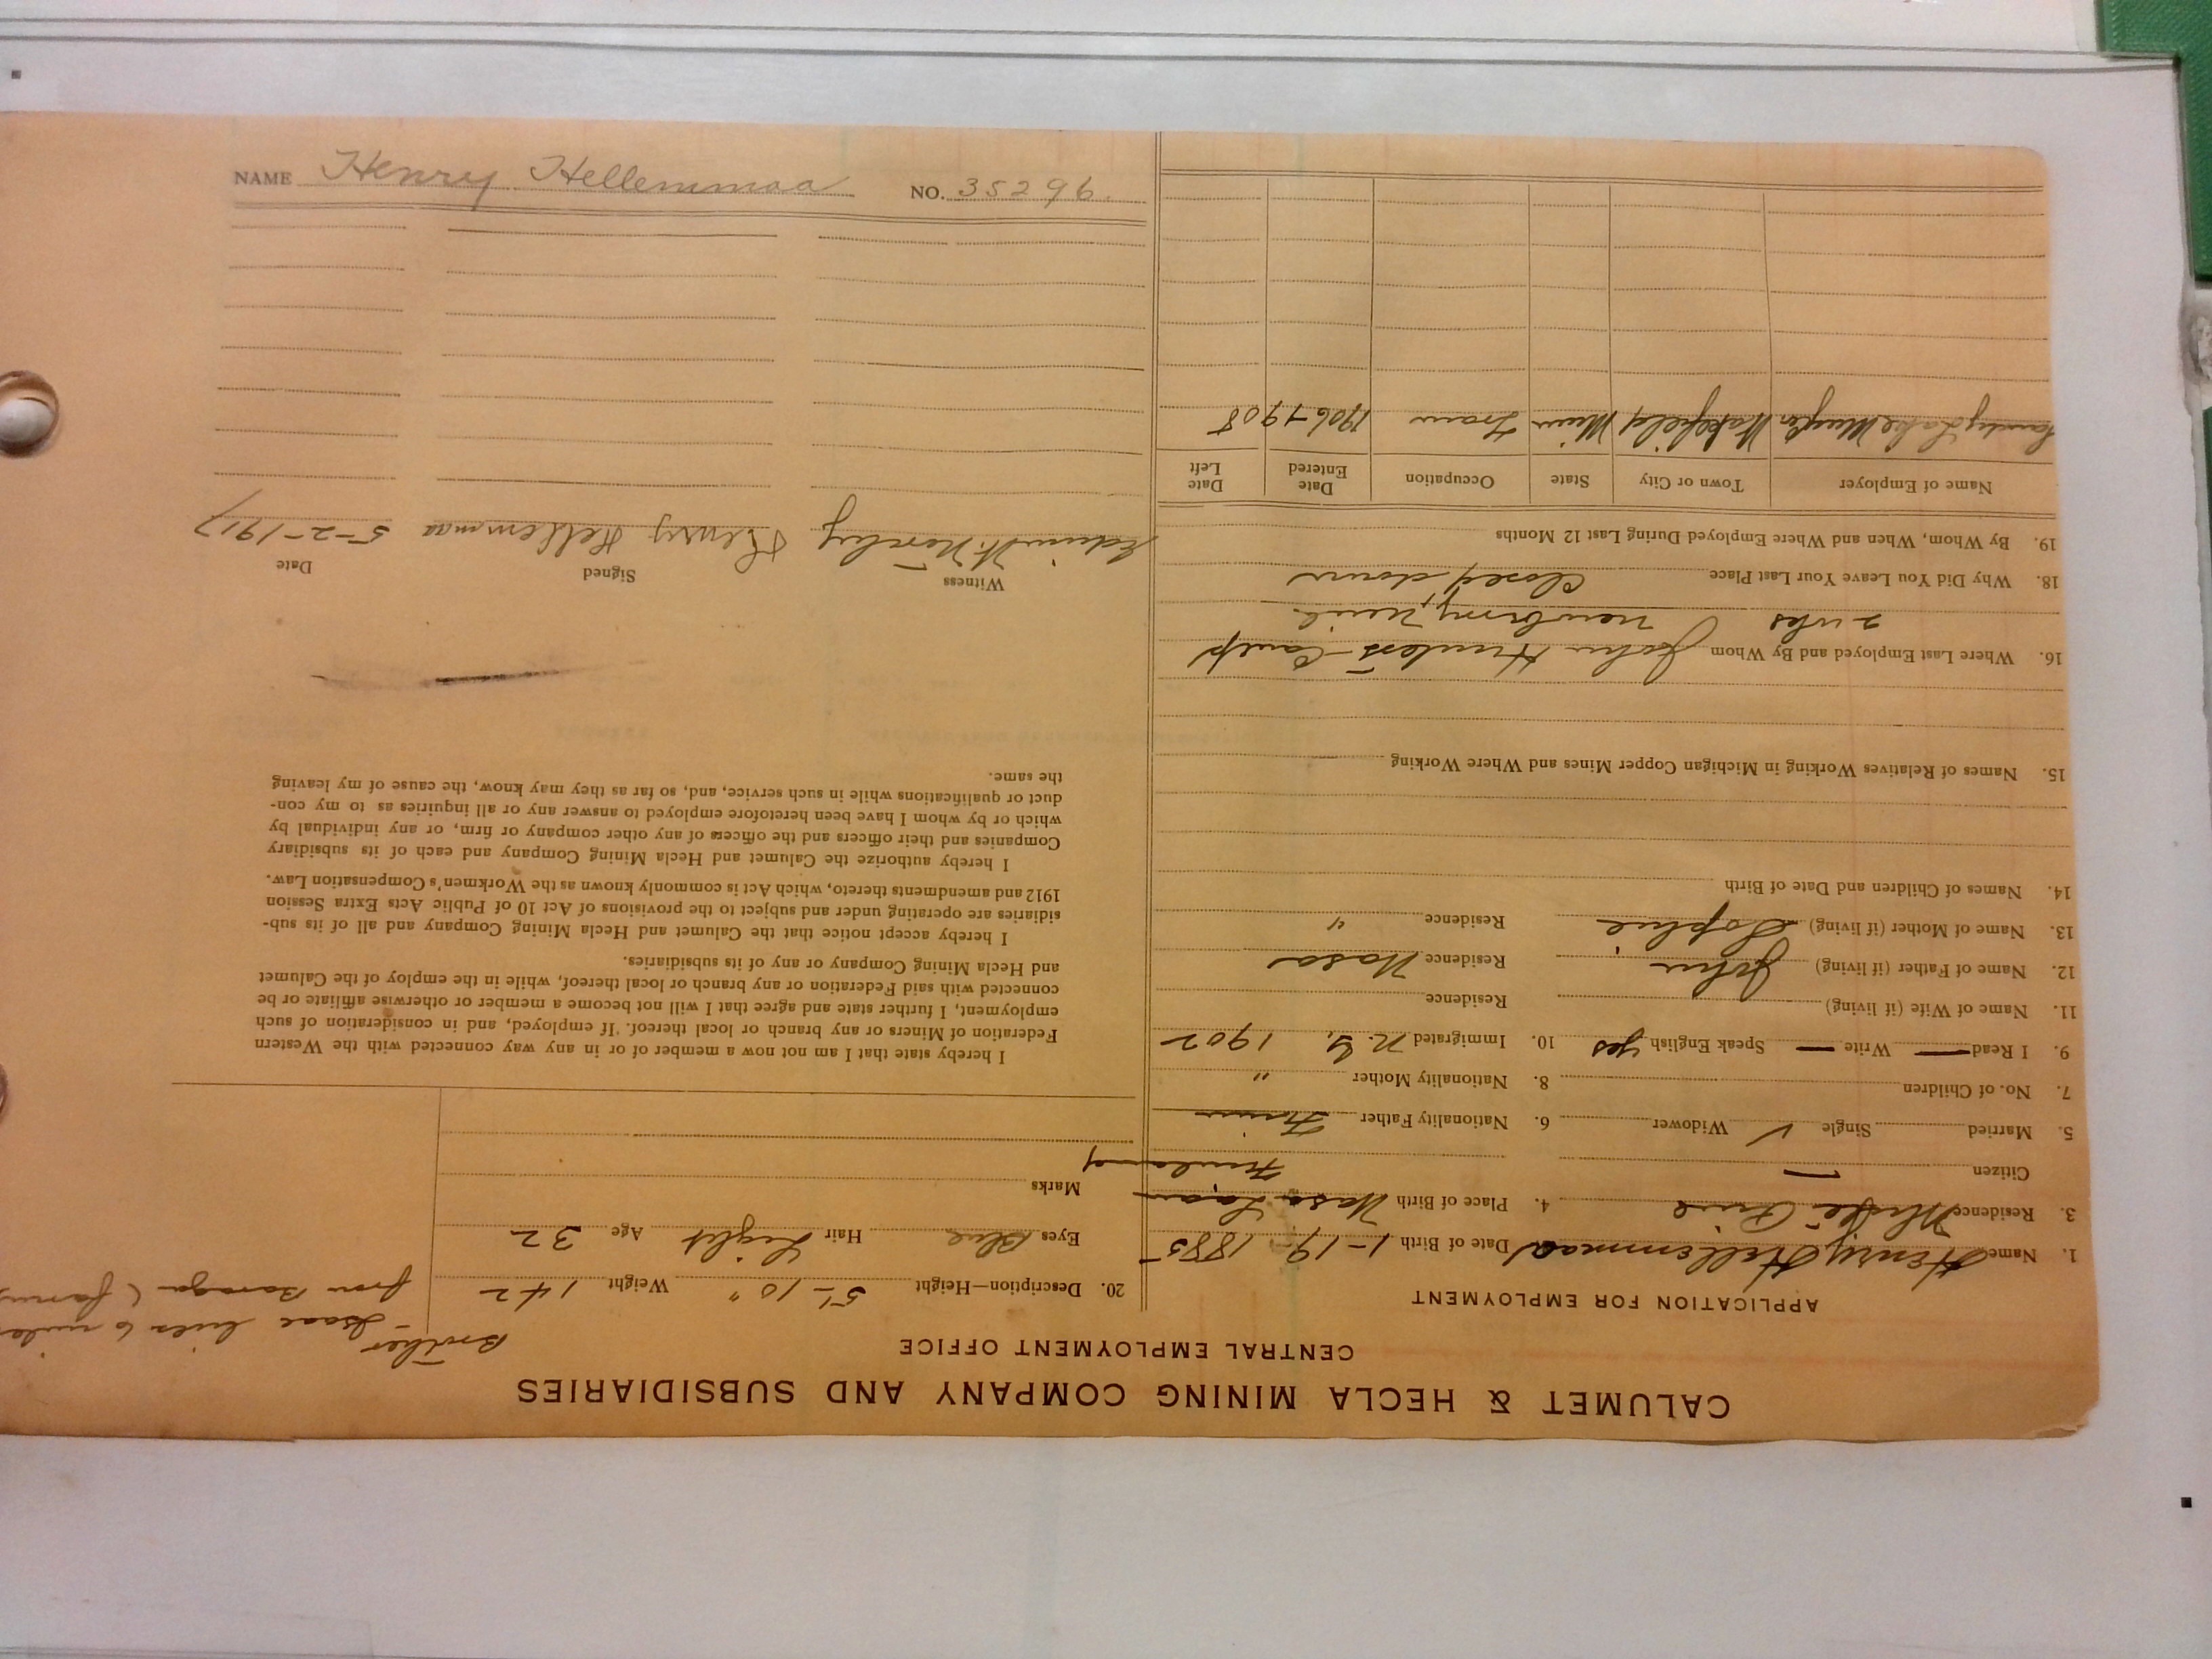 CALUMET & HECLA MINING COMPANY AND SUBSIDIARIES
CENTRAL EMPLOYMENT OFFICE
APPLICATION FOR EMPLOYMENT
1. Name Henry Hellemmaa Date of Birth 1-19-1885
3. Residence 4. Place of Birth Wasa
Citizen — Finland
5. Married Single ✓ Widower 6. Nationality Father Finn
7. No. of Children 8. Nationality Mother "
9. I Read — Write — Speak English yes 10. Immigrated N.Y. 1902
11. Name of Wife (if living) Residence
12. Name of Father (if living) John Residence Wasa
13. Name of Mother (if living) Sophie Residence "
14. Names of Children and Date of Birth
15. Names of Relatives Working in Michigan Copper Mines and Where Working —
16. Where Last Employed and By Whom John Camp
2 wks Newberry,
18. Why Did You Leave Your Last Place Closed down
19. By Whom, When and Where Employed During Last 12 Months
Name of Employer Town or City State Occupation Date Entered Date Left
Lake Wakefield Tram 1906-1908
Brother
Isaac lives 6 miles
from Baraga (farm
20. Description—Height 5'-10" Weight 142
Eyes Blue Hair Light Age 32
Marks
I hereby state that I am not now a member of or in any way connected with the Western
Federation of Miners or any branch or local thereof. If employed, and in consideration of such
employment, I further state and agree that I will not become a member or otherwise affiliate or be
connected with said Federation or any branch or local thereof, while in the employ of the Calumet
and Hecla Mining Company or any of its subsidiaries.
I hereby accept notice that the Calumet and Hecla Mining Company and all of its sub-
sidiaries are operating under and subject to the provisions of Act 10 of Public Acts Extra Session
1912 and amendments thereto, which Act is commonly known as the Workmen's Compensation Law.
I hereby authorize the Calumet and Hecla Mining Company and each of its subsidiary
Companies and their officers and the officers of any other company or firm, or any individual by
which or by whom I have been heretofore employed to answer any or all inquiries as to my con-
duct or qualifications while in such service, and, so far as they may know, the cause of my leaving
the same.
Witness Signed Date
Henry Hellemmaa 5-2-1917
NAME Henry Hellemmaa NO. 35296.